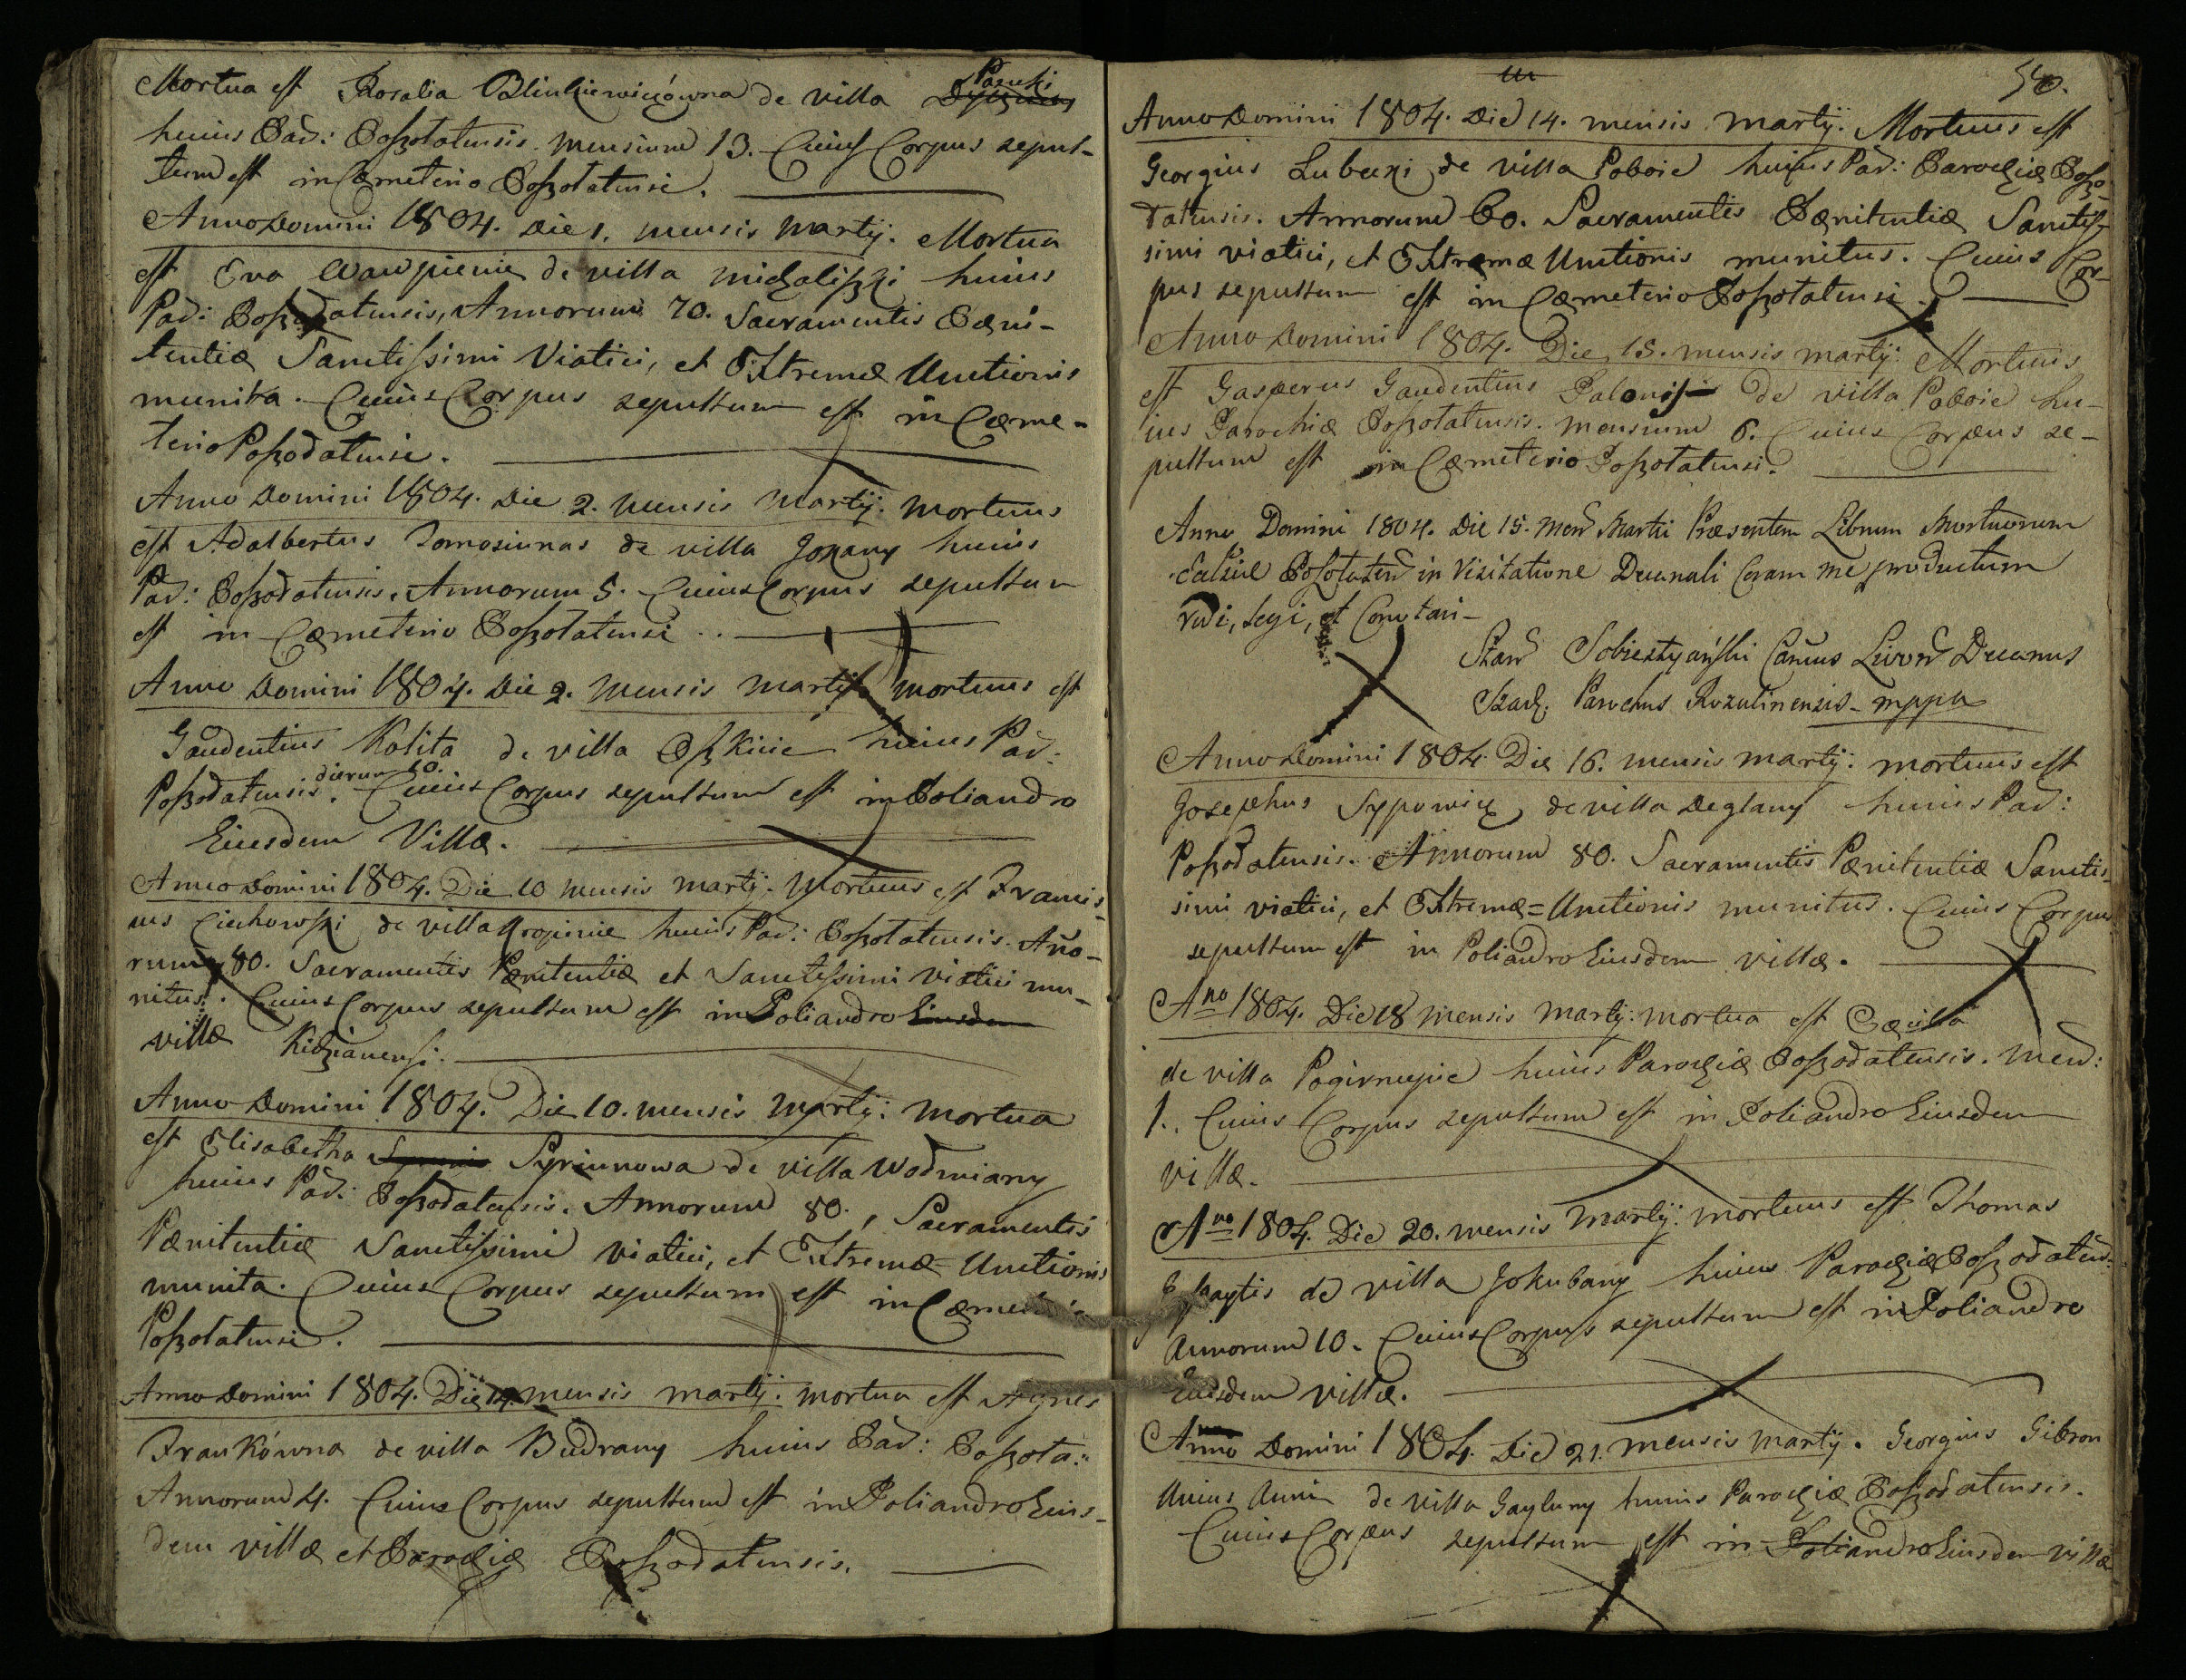 Mortua est Rosalia Blinkiewiczówna de villa Paszki
huius Par: Poszolatensis. Mensium 13. Cuius Corpus sepul-
tum est in Cæmeterio Poszolatensi.
Anno Domini 1804. Die 1. mensis Martij. Mortua
est Eva Wawpienie de villa Michaliszki huius
Par: Poszodatensis, Annorum 70. Sacramentis Pæni-
tentiæ Sanctissimi Viatici, et Extremæ Unctionis
munita. Cuius Corpus sepultum est in Cæme-
terio Poszodatensi.
Anno Domini 1804. Die 2. Mensis Martij. Mortuus
est Adalbertus Tomosiunas de villa Jokany huius
Par: Poszodatensis. Annorum 5. Cuius Corpus sepultum
est in Cæmeterio Poszolatensi.
Anno Domini 1804. Die 2. Mensis Martij mortuus est
Gaudentius Kolita de villa Oszkinie huius Par:
dierum 10.
Poszodatensis. Cuius Corpus sepultum est in Poliandro
Eiusdem Villæ.
Anno Domini 1804. Die 10 mensis Martij. Mortuus est Francis-
cus Ciechowski de villa Kropinie huius Par: Poszolatensis. Año-
rum 80. Sacramentis Pænitentiæ et Sanctissimi Viatici mu-
nitus. Cuius Corpus sepultum est in Poliandro Eiusdem
villæ
Anno Domini 1804. Die 10. mensis Martij: Mortua
est Elisabetha Syriunowa de villa Wodminany
huius Par: Poszodatensis. Annorum 80., Sacramentis
Pænitentiæ Sanctissimi Viatici, et Extremæ Unctionis
munita. Cuius Corpus sepultum est in Cæmeterio
Poszolatensi.
Anno Domini 1804. Die 14. mensis Martij. Mortua est Agnes
Frankówna de villa Budrany huius Par: Poszola:
Annorum 4. Cuius Corpus sepultum est in Poliandro Eius-
dem villæ et Parochiæ Poszodatensis.
50.
Anno Domini 1804. Die 14. mensis Martij. Mortuus est
Georgius Lubecki de villa Poboie huius Par: Parochiæ Poszo-
datensis. Annorum 60. Sacramentis Pænitentiæ Sanctis-
simi Viatici, et Extremæ Unctionis munitus. Cuius Cor-
pus sepultum est in Cæmeterio Poszolatensi.
Anno Domini 1804. Die 15. mensis Martij. Mortuus
est Gasperus Gaudentius Palonis de villa Poboie hu-
ius Parochiæ Poszolatensis. Mensium 6. Cuius Corpus se-
pultum est in Cæmeterio Poszolatensi.
Anno Domini 1804. Die 15. Mens Martii Præsentem Librum Mortuorum
in Visitatione Decanali Coram me productum
vidi, legi, et
Stan Sobiestyański Canus Livon Decanus
Szad. Parochus Rozalinensis mppa
Anno Domini 1804. Die 16. mensis Martij: mortuus est
Josephus Syppowicz de villa Deglany huius Par:
Poszodatensis. Annorum 80. Sacramentis Pænitentiæ Sanctis-
simi Viatici, et Extremæ Unctionis munitus. Cuius Corpus
sepultum est in Poliandro Eiusdem villæ.
Ano 1804. Die 18 mensis Martij: mortua est Cæcilia
de villa Pogirnupie huius Parochiæ Poszodatensis. Mens:
1. Cuius Corpus sepultum est in Poliandro Eiusdem
villæ.
Ano 1804. Die 20. mensis Martij: mortuus est Thomas
de villa Jokubany huius Parochiæ Poszodatens:
Annorum 10. Cuius Corpus sepultum est in Poliandro
Eiusdem villæ.
Anno Domini 1804. Die 21. mensis Martij. Georgius Gibron
Unius Anni de villa Gayluny huius Parochiæ Poszodatensis.
Cuius Corpus sepultum est in Poliandro Eiusdem villæ